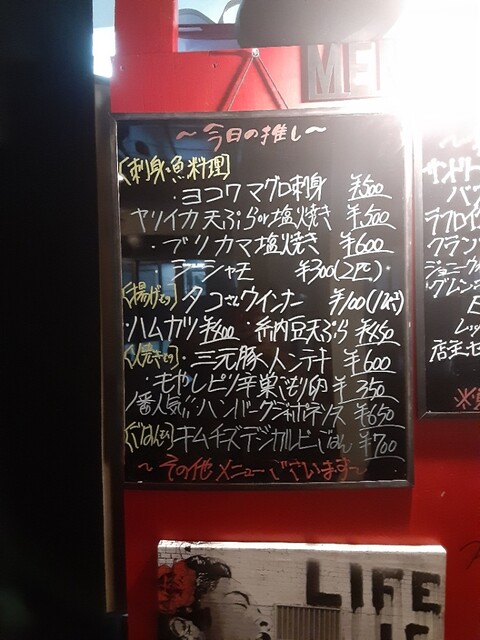 MEN
~今日の推し~
[刺身・魚料理]
・ヨコワマグロ刺身 ¥500
ヤリイカ天ぷらor塩焼き ¥500
・ブリカマ塩焼き ¥600
シシャモ ¥300(2PC)
[揚げもの] タコさんウインナー ¥100(1コ)
・ハムカツ ¥400 納豆天ぷら ¥450
[焼きもの]・三元豚メンチ ¥600
・もやしピリ辛巣ごもり卵 ¥350
1番人気!!ハンバーグジャポネソース ¥650
[ごはんもの]キムチーズデジカルビごはん ¥700
~その他メニューございます~
サンドリ
ラフロイ
クラン
ジョニーウ
グレン
店主
LIFE
IS